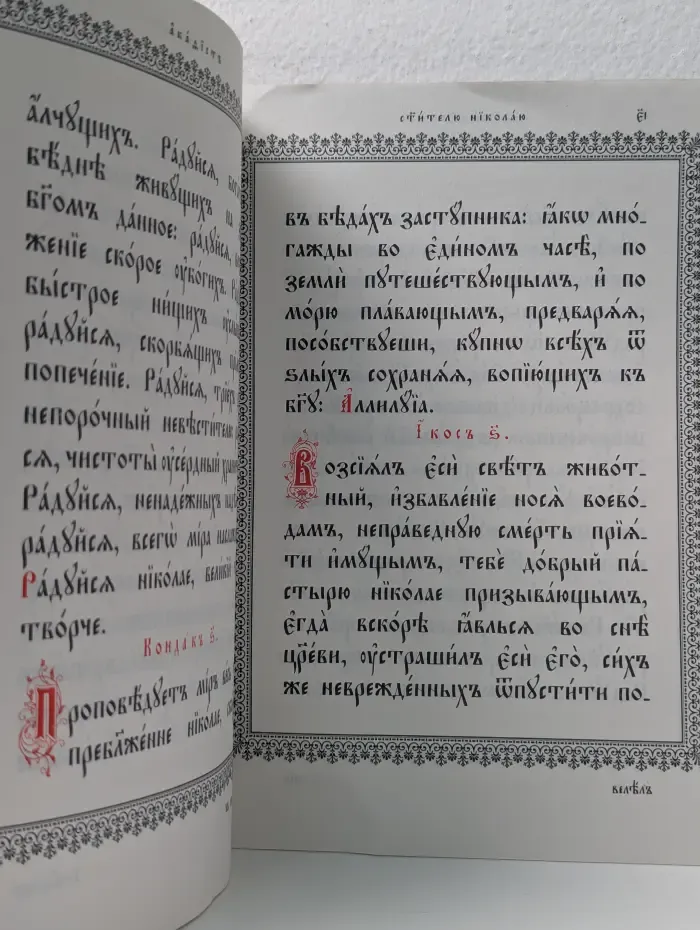 а҆ка́ѳїстъ
а҆́лчꙋщихъ. Ра́дꙋйся,
бѣ́днѣ живꙋ́щихъ на
бг҃омъ да́нное: ра́дꙋйся,
женїе ско́рое ᲂу҆бо́гихъ.
бы́строе ни́щихъ
ра́дꙋйся, скорбѧ́щихъ
попече́нїе. Ра́дꙋйся,
непоро́чный невѣсти́телю:
сѧ, чистоты̀ ᲂу҆се́рдный
Ра́дꙋйсѧ, ненаде́жныхъ
ра́дꙋйсѧ, всегѡ̀ мі́ра
Ра́дꙋйсѧ нїко́лае, вели́кїй
тво́рче.
Конда́къ ѕ҃.
Проповѣ́дꙋетъ мі́ръ
пребл҃же́нне нїко́лае,
ст҃и́телю нїкола́ю
є҃і
въ бѣда́хъ застꙋ́пника: ꙗ҆́кѡ мно-
га́жды во є҆ди́номъ часѣ̀, по
землѝ пꙋтеше́ствꙋющымъ, и҆ по
мо́рю пла́вающымъ, предварѧ́ѧ,
посо́бствꙋеши, кꙋ́пнѡ всѣ́хъ ѿ
ѕлы́хъ сохранѧ́ѧ, вопїю́щихъ къ
бг҃ꙋ: А҆ллилꙋ́їа.
І҆́косъ ѕ҃.
Возсїѧ́лъ є҆сѝ свѣ́тъ живо́т-
ный, и҆збавле́нїе носѧ̀ воево́-
дамъ, непра́веднꙋю сме́рть прїѧ́-
ти и҆мꙋ́щымъ, тебѐ до́брый па́-
стырю нїко́лае призыва́ющымъ,
є҆гда̀ вско́рѣ ꙗ҆́влься во снѣ̀
цр҃е́ви, ᲂу҆страши́лъ є҆сѝ є҆го̀, си́хъ
же невреждє́нныхъ ѿпꙋсти́ти по-
велѣ́лъ